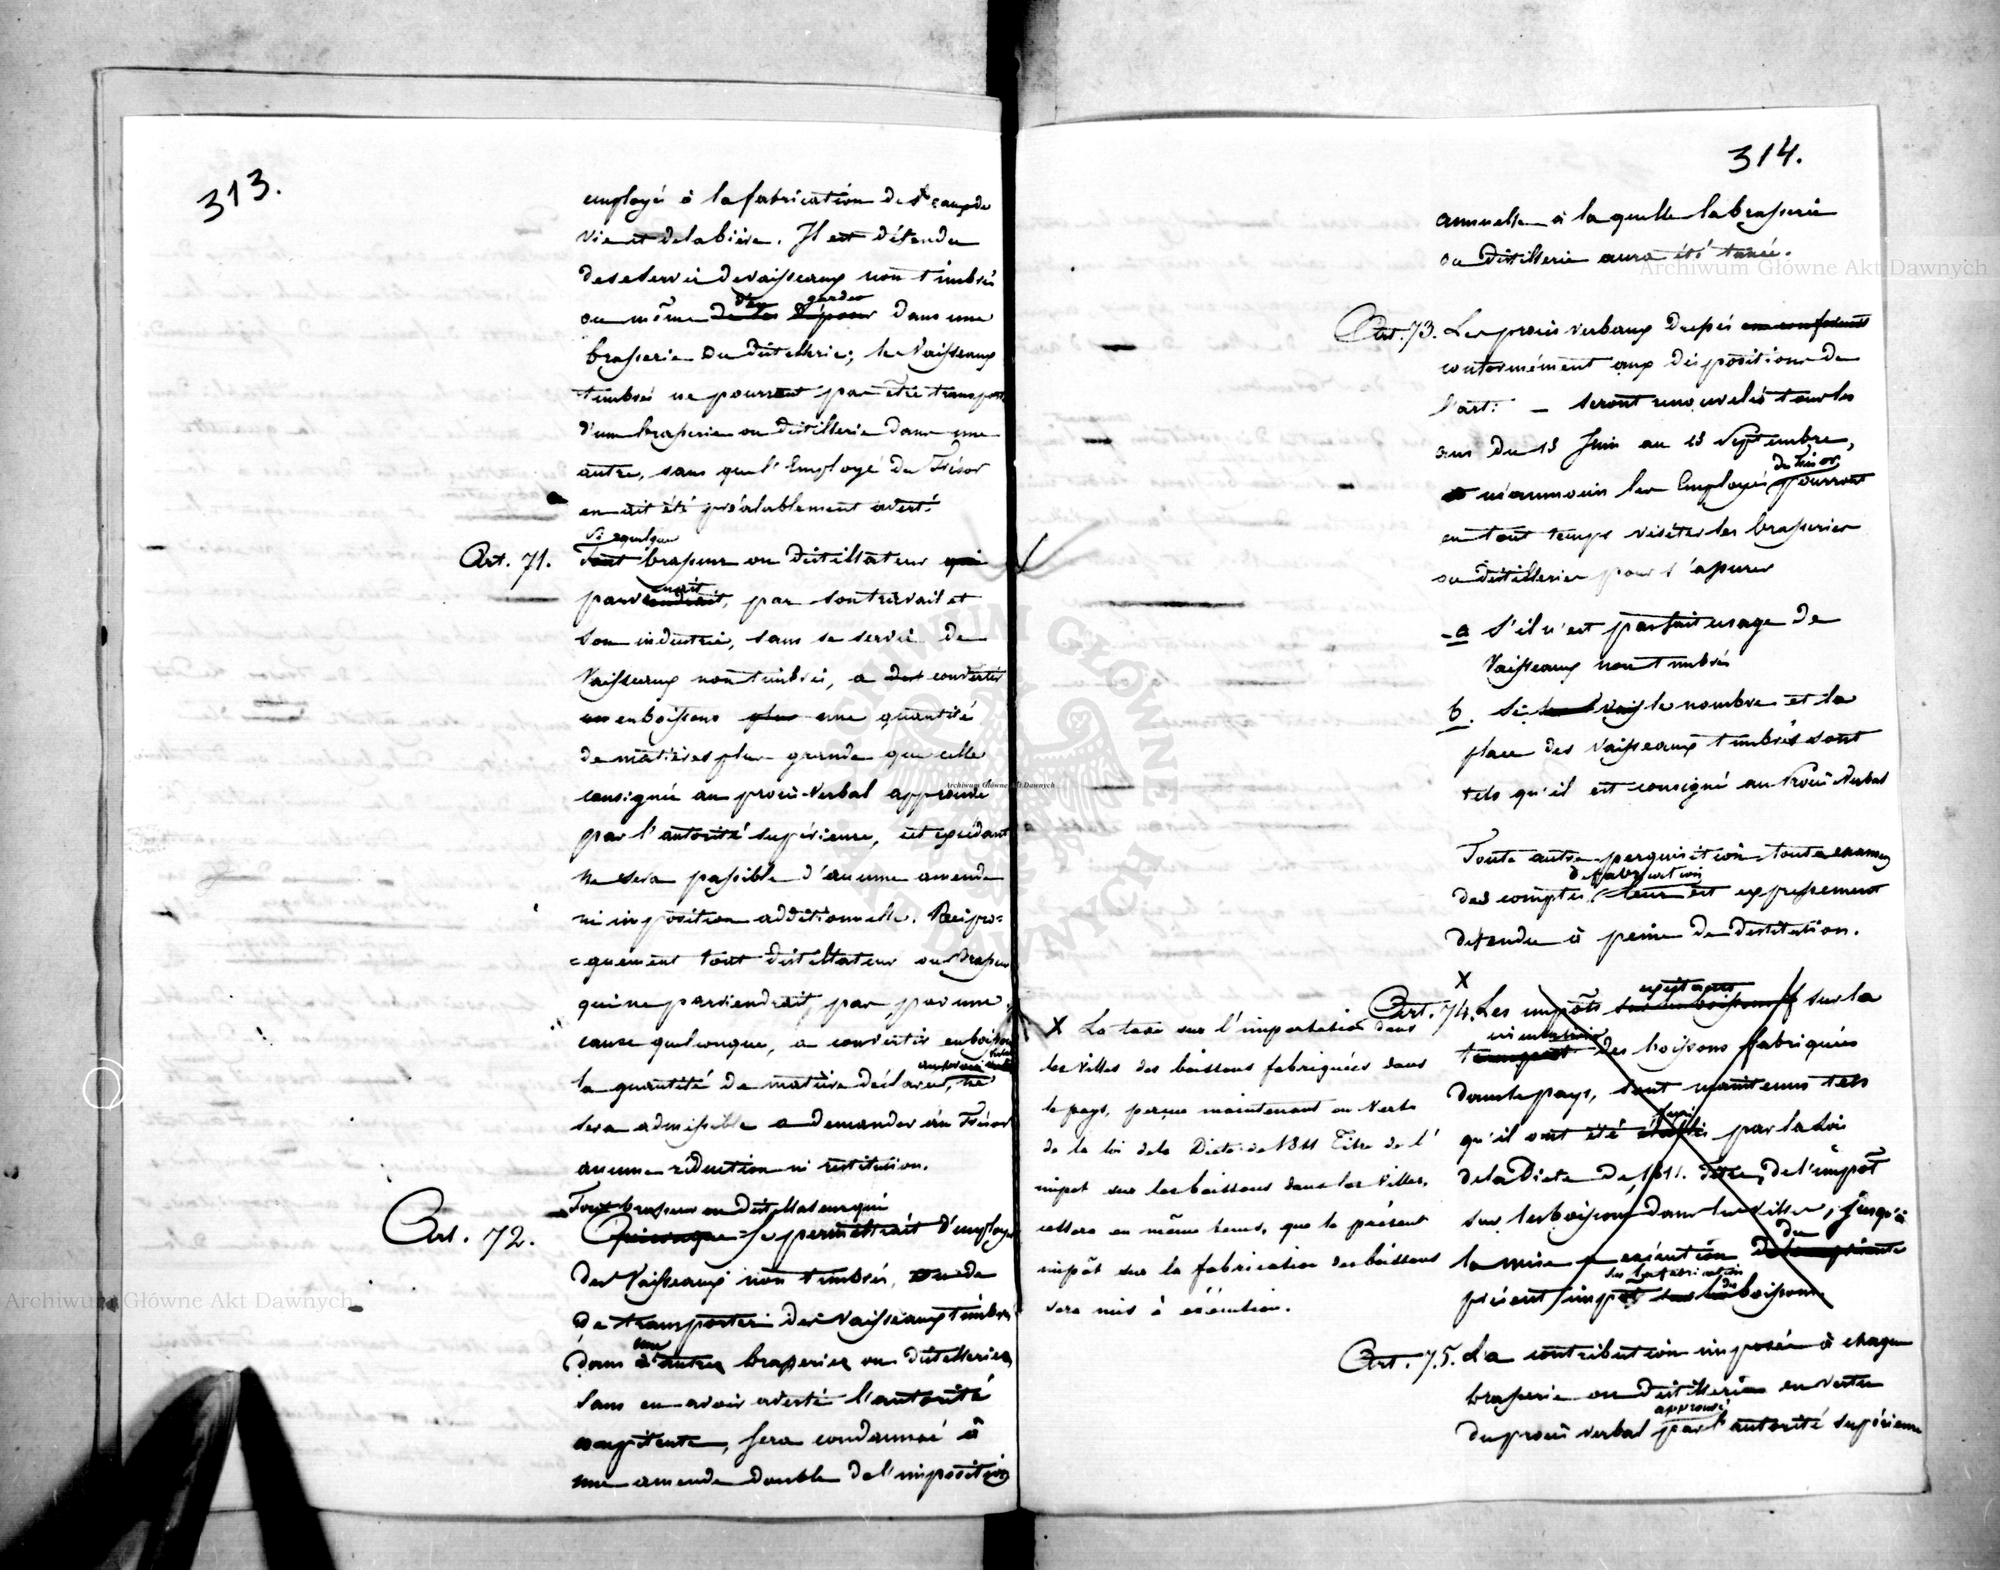 313.
employé à la fabrication de l'eau de
vie et de la bière. Il est défendu
de se servir de vaisseaux non timbrés
ou même de les d'en déposer garder dans une
brasserie ou distillerie; les Vaisseaux
timbrés ne pourront pas être transpor
d'une brasserie ou distillerie dans une
autre, sans que l'Employé du Trésor
en ait été préalablement averti.
Art. 71. Tout Si quelque brasseur ou distillateur qui
parviendrait naît, par son travail et
son industrie, sans se servir de
Vaisseaux non timbrés, a convertir
en boissons plus une quantité
de matières plus grande que celle
consignée au procès-verbal approuvé
par l'autorité supérieure, cet excédant
ne sera passible d'aucune amende
ni imposition additionnelle. Récipro=
=quement tout distillateur ou Brasseur
qui ne parviendrait pas, par une
cause quelconque, a convertir en boisson
la quantité de matière déclarée, ne
sera admissible a demander au Trésor
aucune réduction ni restitution.
Tout brasseur ou distillateur qui
Art. 72. Quiconque se permettrait d'employer
des Vaisseaux non timbrés, ou de
de transporter des Vaisseaux timbrés
dans une d'autres brasseries ou distilleries
sans en avoir averti l'autorité
compétente, sera condamné à
une amende double de l'imposition
314.
annuelle à laquelle la brasserie
ou distillerie aura été taxée.
Art. 73. Les procès verbaux dressés en conformité
conformément aux dispositions de
l'art: — seront renouvelés tous les
ans du 15 Juin au 15 Septembre,
néanmoins les Employés du Trésor pourront
en tout temps visiter les brasseries
ou distilleries pour s'assurer
a s'il n'est pas fait usage de
Vaisseaux non timbrés
b. Si le nombre et la
place des Vaisseaux timbrés sont
tels qu'il est consigné au Procès Verbal
Toute autre perquisition, tout examen
des comptes de fabrication leur est expressement
défendu à peine de destitution.
X
Art. 74. Les impôts existants sur les boissons sur la
transport des boissons fabriquées
dans le pays, sont maintenus tels
qu'il ont été établis par la Loi
de la Diete de 1811. Titre, de l'impôt
sur les boissons dans les villes, jusqu'à
la mise en exécution du
présent impôt sur la fabrication des boissons.
X La taxe sur l'importation dans
les villes des boissons fabriquées dans
le pays, perçue maintenant en vertu
de la loi de la Diete de 1811 Titre de l'
impot sur les boissons dans les Villes,
cessera en même tems, que le présent
impôt sur la fabrication des boissons
sera mis à exécution.
Art. 75. La contribution imposée à chaque
brasserie ou distillerie en vertu
du procès verbal approuvé par l'autorité supérieure
Archiwum Główne Akt Dawnych
Archiwum Główne Akt Dawnych
Archiwum Główne Akt Dawnych
ARCHIWUM GŁÓWNE AKT DAWNYCH